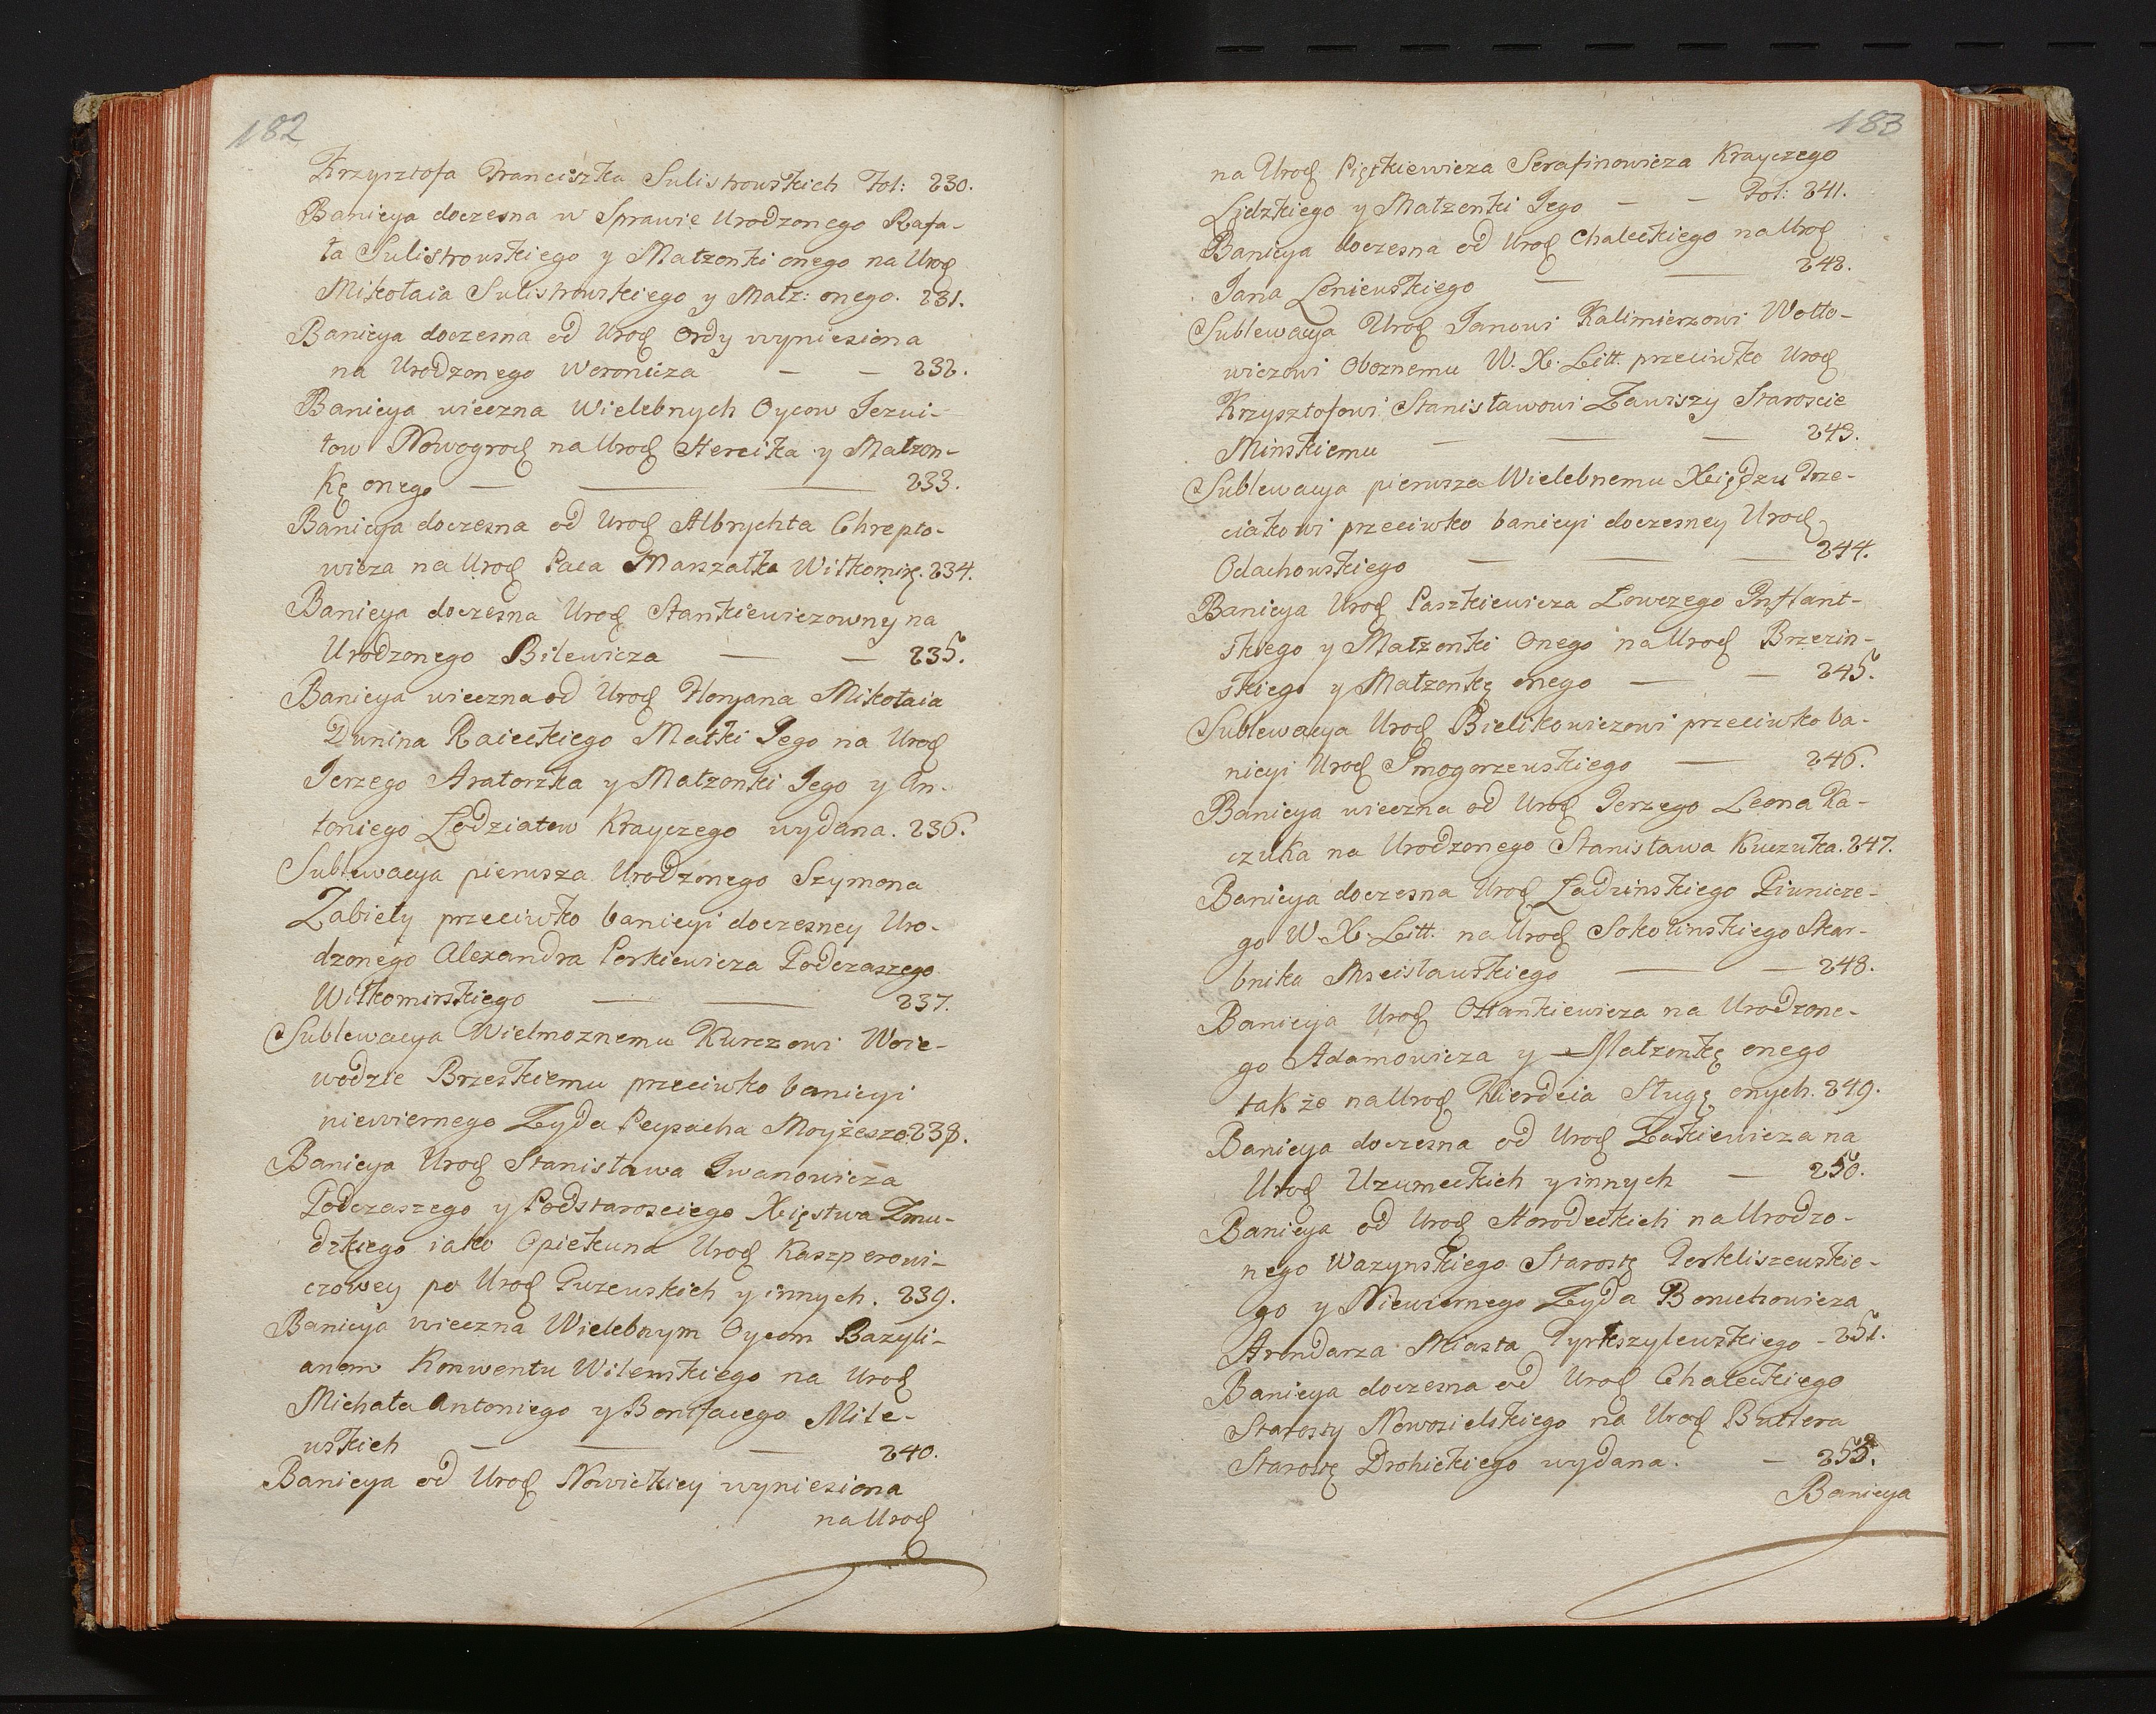 182
Krzysztofa Franciszka Sulistrowskich Fol: 230.
Banicya doczesna w Sprawie Urodzonego Rafa-
ła Sulistrowskiego y Małzonki onego na Urod
Mikołaia Sulistrowskiego y Małz: onego. 231.
Banicya doczesna od Urod Ordy wyniesiona
na Urodzonego Woronicza — — 232.
Banicya wieczna Wielebnych Oycow Jezui-
tow Nowogrod na Urod Hercika y Małzon-
kę onego — — 233.
Banicya doczesna od Urod Albrychta Chrepto-
wicza na Urod Paca Marszałka Wiłkomir. 234.
Banicya doczesna Urod Stankiewiczowny na
Urodzonego Bilewicza — — 235.
Banicya wieczna od Urod Floryana Mikołaia
Dunina Raieckiego Matki Jego na Urod
Jerzego Aratorzka y Małzonki Jego y An-
toniego Lodziatow Krayczego wydana. 236.
Sublewacya pierwsza Urodzonego Szymona
Zabieły przeciwko banicyi doczesney Uro-
dzonego Alexandra Perkiewicza Podczaszego
Wiłkomirskiego — — 237.
Sublewacya Wielmoznemu Kurczowi Woie-
wodzie Brzeskiemu przeciwko banicyi
niewiernego Zyda Peysacha Moyżeszo. 238.
Banicya Urod Stanisława Iwanowicza
Podczaszego y Podstarosciego Xięstwa Zmu-
dzkiego iako Opiekuna Urod Kaszperowi-
czowey po Urod Puzewskich y innych. 239.
Banicya wieczna Wielebnym Oycom Bazyli-
anom Konwentu Wilenskiego na Urod
Michała Antoniego y Bonifacego Mile-
wskich — — — 240.
Banicya od Urod Nowickiey wyniesiona
na Urod
183
na Urod Piętkiewicza Serafinowicza Krayczego
Lidzkiego y Małzonki Jego — — Fol: 241.
Banicya doczesna od Urod Chaleckiego na Urod
Jana Leniewskiego — — 242.
Sublewacya Urod Janowi Kalimierzowi Wołło-
wiczowi Oboznemu W. X. Litt. przeciwko Urod
Krzysztofowi Stanisławowi Zawiszy Staroscie
Minskiemu — — — 243.
Sublewacya pierwsza Wielebnemu Xiędzu Trze-
ciakowi przeciwko banicyi doczesney Urod
Odachowskiego — — — 244.
Banicya Urod Paszkiewicza Lowczego Inflant-
skiego y Małzonki Onego na Urod Brzezin-
skiego y Małzonkę onego — — 245.
Sublewacya Urod Bielikowiczowi przeciwko ba-
nicyi Urod Smogorzewskiego — 246.
Banicya wieczna od Urod Jerzego Leona Ka-
czuka na Urodzonego Stanisława Kuczuka. 247.
Banicya doczesna Urod Ladzinskiego Piwnicze-
go W. X. Litt. na Urod Sokolinskiego Skar-
bnika Mscisławskiego — — 248.
Banicya Urod Ottankiewicza na Urodzone-
go Adamowicza y Małzonkę onego
tak że na Urod Kierdeia Sługę onych. 249.
Banicya doczesna od Urod Zakiewicza na
Urod Uzumeckich y innych — 250.
Banicya od Urod Horodeckich na Urodzo-
nego Wazynskiego Starostę Perkliszewskie-
go y Niewiernego Zyda Boruchowicza
Arendarza Miasta Pyrkszylewskiego - 251.
Banicya doczesna od Urod Chaleckiego
Starosty Nowosielskiego na Urod Butlera
Starostę Drohickiego wydana. —
Banicya